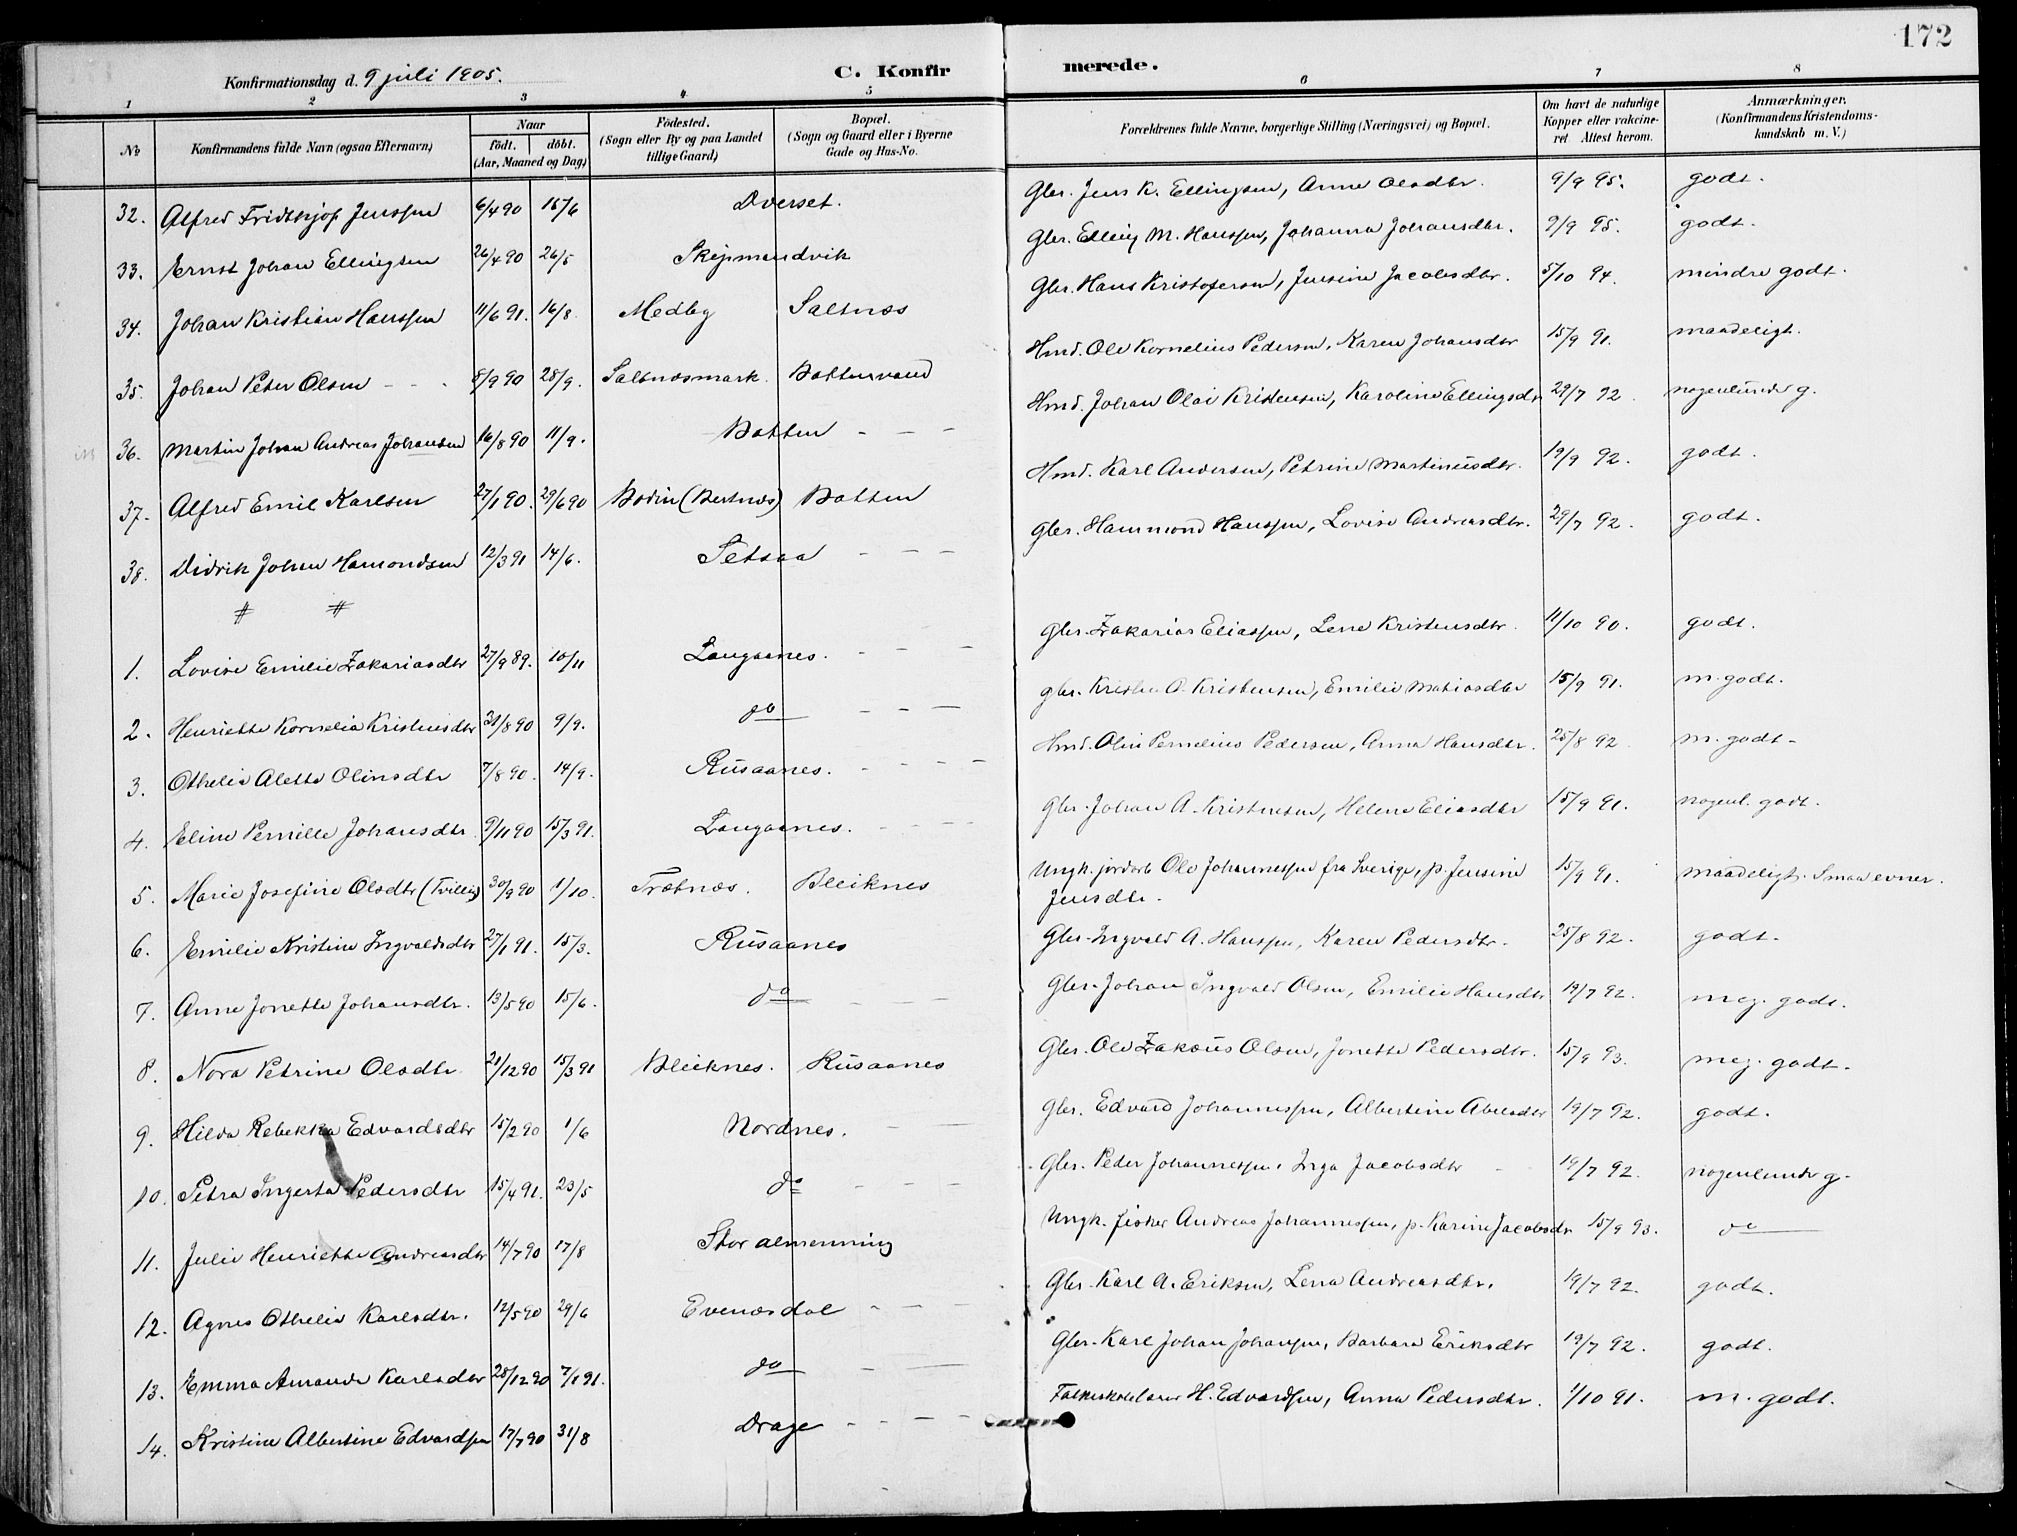 172
Konfirmationsdag d. 9 juli 1905.
C. Konfirmerede.
1 2 3 4 5 6 7 8
No
Konfirmandens fulde Navn (ogsaa Efternavn)
Naar
födt. döbt.
(Aar, Maaned og Dag)
Födested.
(Sogn eller By og paa Landet
tillige Gaard)
Bopæl.
(Sogn og Gaard eller i Byerne
Gade og Hus-No.
Forældrenes fulde Navne, borgerlige Stilling (Næringsvei) og Bopæl.
Om havt de naturlige
Kopper eller vakcine-
ret Attest herom.
Anmærkninger.
(Konfirmandens Kristendoms-
kundskab m. V.)
32. Alfred Fridthjof Jenssen 6/4 90 15/6 Dverset. Gbr. Jens K. Ellingsen, Anne Olsdtr. 9/9 95. godt.
33. Ernst Johan Ellingsen 26/4 90 26/5 Skipmandvik Gbr. Elling M. Hanssen, Johanna Johansdtr. 9/9 95. godt.
34. Johan Kristian Hanssen 11/6 91. 16/8. Medby Saltnæs Gbr. Hans Kristofersen, Jensine Jacobsdtr. 5/10 94. mindre godt.
35. Johan Peter Olsen 8/9 90 28/9. Saltnæsmark. Bottenvand Hmd. Ole Kornelius Pedersen, Karen Johansdtr 15/9 91. maadeligt.
36. Martin Johan Andreas Johansen 16/8 90 11/9. Botten Hmd. Johan Olai Kristensen, Karoline Ellingsdtr 29/7 92. nogenlunde g.
37. Alfred Emil Karlsen 27/1 90. 29/6 90 Bodin (Bertnæs) Botten Hmd. Karl Andersen, Petrine Martinusdtr. 19/9 92. godt.
38. Didrik Johan Hamondsen 12/3 91 14/6. Setsaa Gbr. Hammond Hanssen, Lovise Andreasdtr. 29/7 92. godt.
# #
1. Lovise Emilie Zakariasdtr 27/9 89. 10/11 Langaanes. Gbr. Zakarias Eliassen, Lene Kristensdtr. 11/10 90. godt.
2. Henriette Kornelia Kristensdtr 31/8 90 9/9. do Gbr. Kristen O. Kristensen, Emilie Matiasdtr 15/9 91. m. godt.
3. Othelie Alette Olinsdtr 7/8 90. 14/9. Rusaanes. Hmd. Olin Pernelius Pedersen, Anna Hansdtr. 25/8 92. m. godt.
4. Eline Pernille Johansdtr. 9/11 90 15/3 91. Langaanes. Gbr. Johan A. Kristensen, Helene Eliasdtr 15/9 91. nogenl. godt.
5. Marie Josefine Olsdtr (Tvilling) 30/9 90 1/10. Trætnæs. Bleiknes Ungk. jordarb Ole Johannessen fra Sverige, p. Jensine
Jensdtr. 15/9 91. maadeligt. Smaa evner.
6. Emilie Kristine Ingvaldsdtr 27/1 91. 15/3. Rusaanes Gbr. Ingvald A. Hanssen, Karen Pedersdtr. 25/8 92. godt.
7. Anne Jonette Johansdtr. 13/5 90 15/6. do Gbr. Johan Ingvald Olsen, Emilie Hansdtr 19/7 92. meg. godt.
8. Nora Petrine Olsdtr 21/12 90 15/3 91 Bleiknes. Rusaanes Gbr. Ole Zakæus Olsen, Jonette Pedersdtr. 15/9 93. meg. godt.
9. Hilda Rebekka Edvardsdtr 15/2 90 1/6 Nordnes. Gbr. Edvard Johannessen, Albertine Abelsdtr 19/7 92. godt.
10. Petra Ingerta Pedersdtr 15/4 91. 23/5 do Gbr. Peder Johannessen, Inga Jacobsdtr 19/7 92. nogenlunde g.
11. Julie Henriette Andreasdtr 14/7 90 17/8 Storalmenning Ungk. fisker Andreas Johannessen, p. Karine Jacobsdtr 15/9 93. do
12. Agnes Othelie Karlsdtr. 12/5 90 29/6 Evenesdal Gbr. Karl A. Eriksen, Lena Andreasdtr. 19/7 92. godt.
13. Emma Amanda Karlsdtr 28/12 90 7/1 91. do Gbr. Karl Johan Johansen, Barbara Eriksdtr 19/7 92. godt.
14. Kristine Albertine Edvardsen 17/7 90 31/8 Drage Folkeskolelærer H. Edvardsen, Anna Pedersdtr. 1/10 91. m. godt.